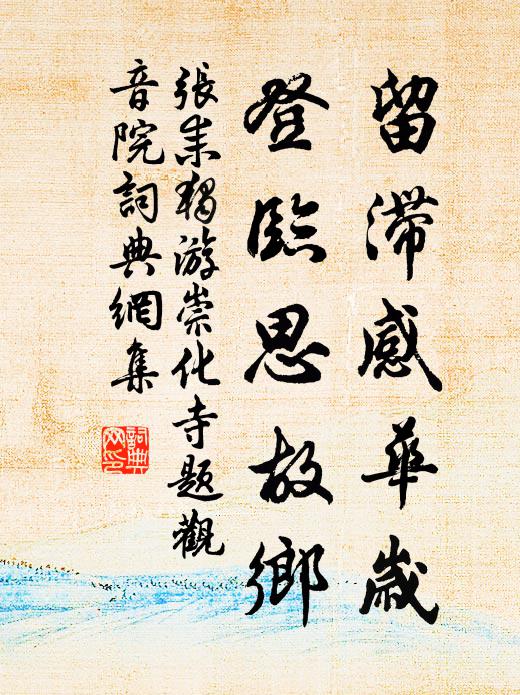 留滯感華歲
登臨思故鄉
張耒獨游崇化寺題觀
音院詞典網集
詞典網印